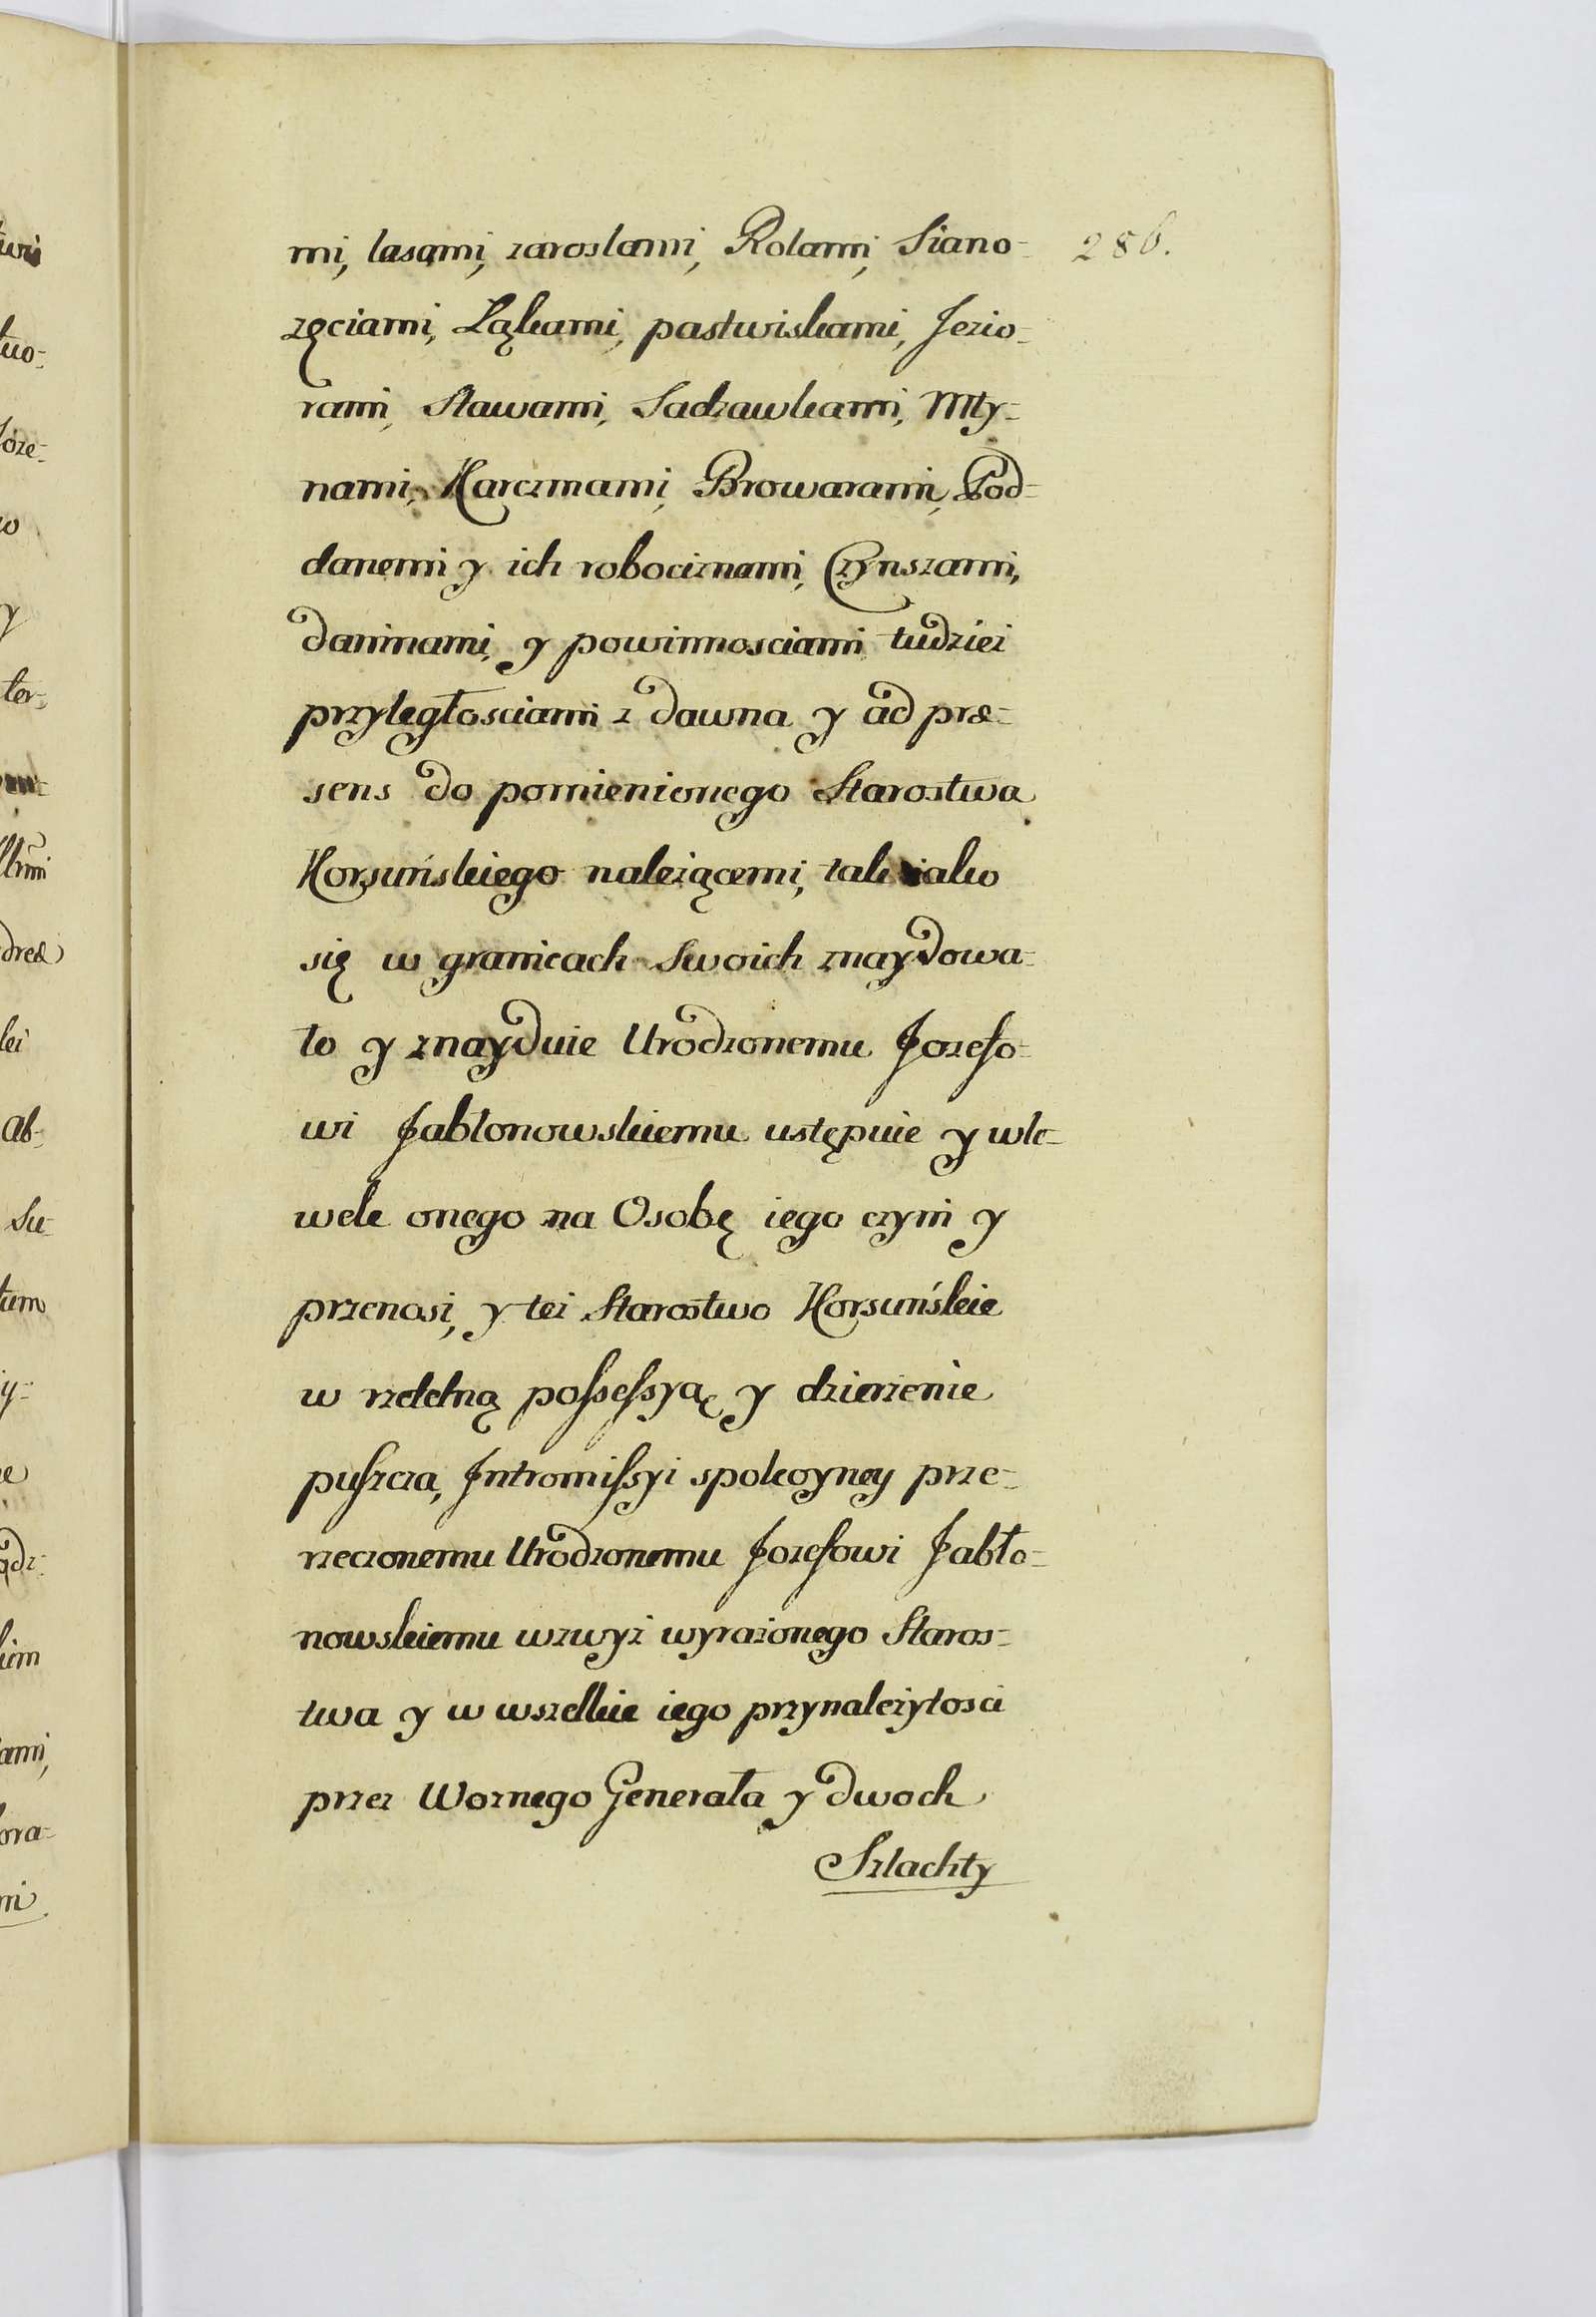 286.
mi, lasami, zaroslami, Rolami, Siano-
zęciami, Łąkami, pastwiskami, Jezio-
rami, Stawami, Sadzawkami, Mły-
nami, Karczmami, Browarami, Pod-
danemi y ich robociznami, Czynszami,
daninami, y powinnosciami tudziez
przyległosciami z dawna y ad præ-
sens do pomienionego Starostwa
Korsuńskiego nalezącemi, tak iako
się w granicach swoich znaydowa-
ło y znayduie Urodzonemu Jozefo-
wi Jabłonowskiemu ustępuie y wle-
wek onego na Osobę iego czyni y
przenosi, y tez Starostwo Korsuńskie
w rzetelną possessyą y dzierzenie
puszcza, Intromissyi spokoyney prze-
rzeczonemu Urodzonemu Jozefowi Jabło-
nowskiemu wzwyz wyrazonego Staros-
twa y w wszelkie iego przynalezytosci
przez Woznego Generała y dwoch
Szlachty